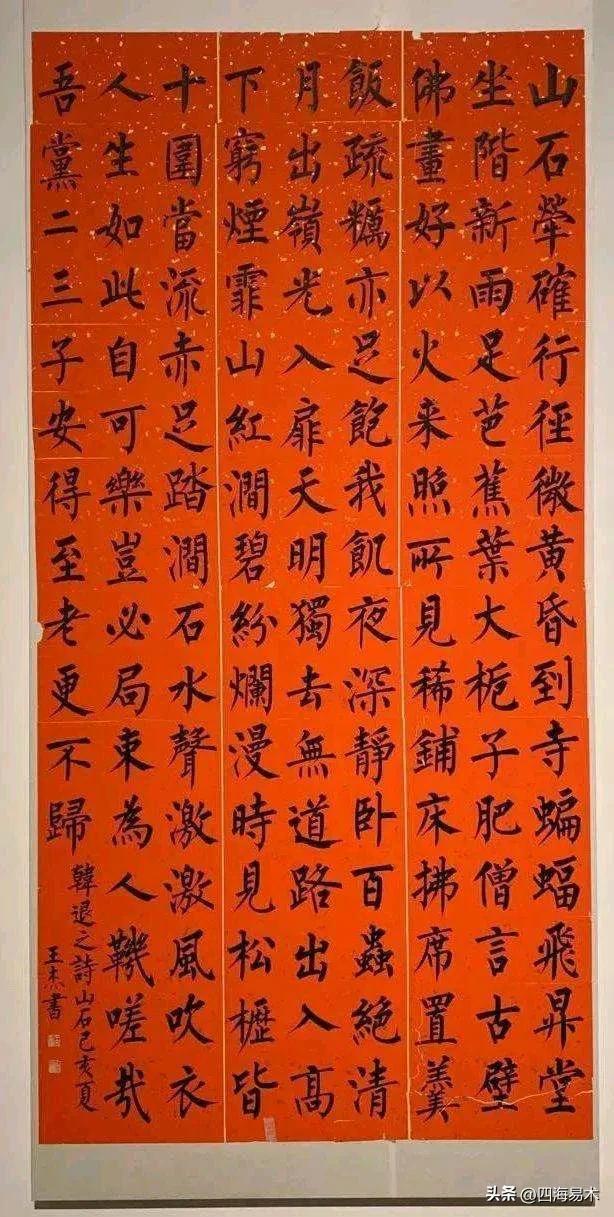 山石犖確行徑微黄昏到寺蝙蝠飛昇堂
坐階新雨足芭蕉葉大梔子肥僧言古壁
佛畫好以火来照所見稀鋪床拂席置羹
飯疏糲亦足飽我飢夜深靜卧百蟲絕清
月出嶺光入扉天明獨去無道路出入高
下窮煙霏山紅澗碧紛爛漫時見松櫪皆
十圍當流赤足踏澗石水聲激激風吹衣
人生如此自可樂豈必局束為人鞿嗟哉
吾黨二三子安得至老更不歸
韓退之詩山石己亥夏
王杰書
头条 @四海易术